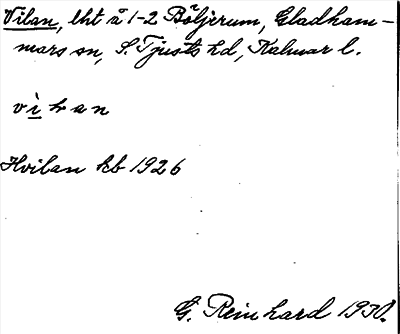 Vilan, lht å 1-2 Böljerum, Gladham-
mars sn, S. Tjusts hd, Kalmar l.
vilan
Hvilan kb 1926
G. Reinhard 1930.